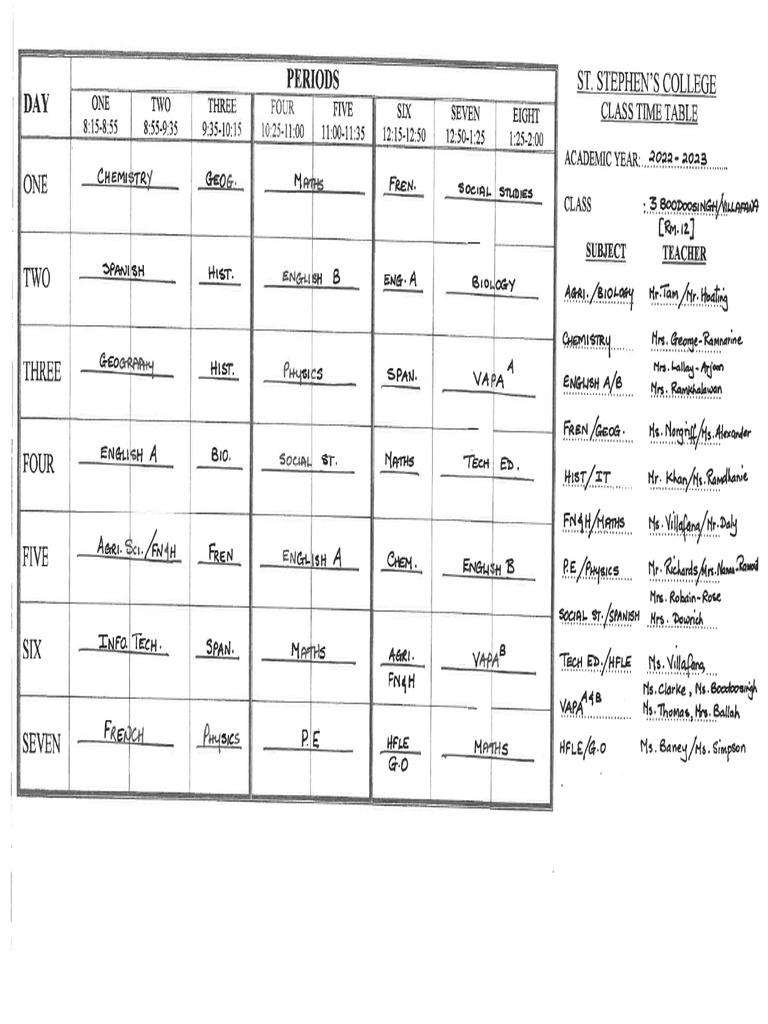 PERIODS
DAY
ONE TWO THREE FOUR FIVE SIX SEVEN EIGHT
8:15-8:55 8:55-9:35 9:35-10:15 10:25-11:00 11:00-11:35 12:15-12:50 12:50-1:25 1:25-2:00
ONE CHEMISTRY GEOG. MATHS FREN. SOCIAL STUDIES
TWO SPANISH HIST. ENGLISH B ENG. A BIOLOGY
THREE GEOGRAPHY HIST. PHYSICS SPAN. VAPA A
FOUR ENGLISH A BIO. SOCIAL ST. MATHS TECH ED.
FIVE AGRI. SCI./FN4H FREN ENGLISH A CHEM. ENGLISH B
SIX INFO. TECH. SPAN. MATHS AGRI. VAPA B
FN4H
SEVEN FRENCH PHYSICS P.E HFLE MATHS
G.O
ST. STEPHEN'S COLLEGE
CLASS TIME TABLE
ACADEMIC YEAR: 2022-2023
CLASS : 3 BOODOOSINGH/VILLAFANA
[RM.12]
SUBJECT TEACHER
AGRI./BIOLOGY Mr. Tam/Mr. Hosting
CHEMISTRY Mrs. George-Ramnarine
Mrs. Lallay-Arjoon
ENGLISH A/B Mrs. Ramkhalawan
FREN/GEOG. Ms. Norgriff/Ms. Alexander
HIST/IT Mr. Khan/Ms. Ramdhanie
FN4H/MATHS Ms. Villafana/Mr. Daly
P.E/PHYSICS Mr. Richards/Mrs.
Mrs. Robain-Rose
SOCIAL ST./SPANISH Mrs. Dowrich
TECH ED./HFLE Ms. Villafana
Ms. Clarke, Ms. Boodoosingh
VAPA A4B Ms. Thomas, Mrs. Ballah
HFLE/G.O Ms. Baney/Ms. Simpson